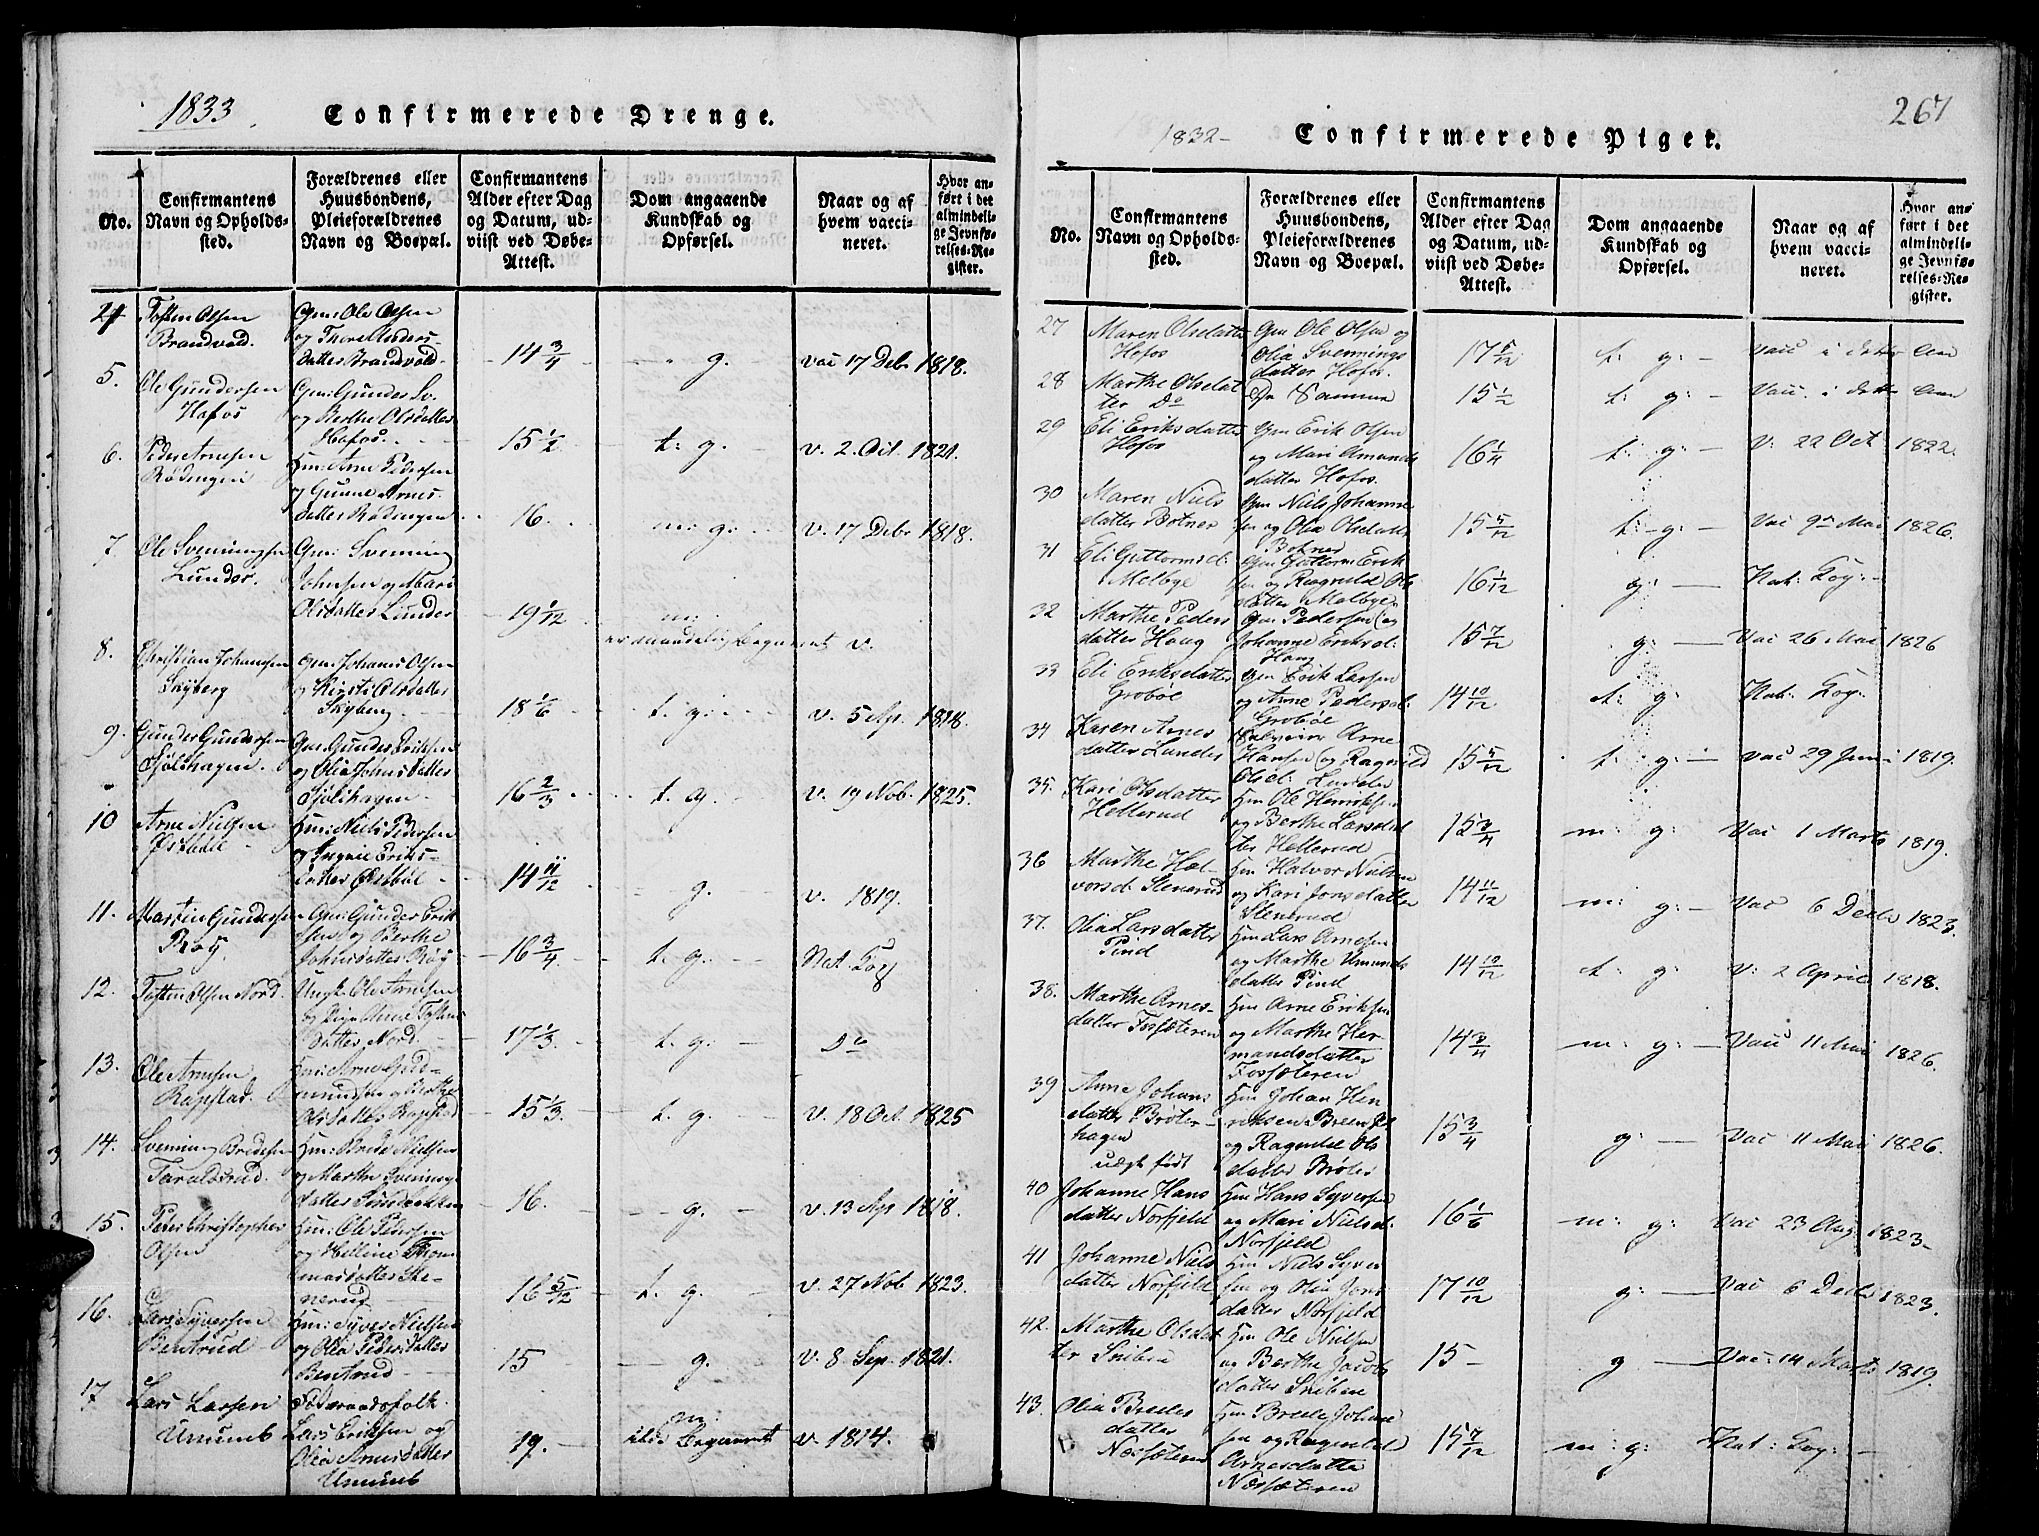 1833.
Confirmerede Drenge.
No.
Confirmantens
Navn og Opholds-
sted.
Forældrenes eller
Huusbondens,
Pleieforældrenes
Navn og Boepæl.
Confirmantens
Alder efter Dag
og Datum, ud-
viist ved Døbe-
Attest.
Dom angaaende
Kundskab og
Opførsel.
Naar og af
hvem vacci-
neret.
Hvor an-
ført i det
almindeli-
ge Jevnfø-
relses-Re-
gister.
4 Tosten Olsen
Brandvold.
Gm: Ole Olsen
og Thore
datter Brandvold
14 3/4
g.
vac 17 Debr 1818.
5. Ole Gundersen
Hofos
Gm: Gunder
og Berthe Olsdatter
Hofos.
15 1/2
t: g.
v. 2. Oct. 1821.
6. Peder Arnesen
Rødningen
Hm: Arne Pedersen
og Gunne Arnes-
datter Rødningen
16.
m: g:
v. 17 Debr 1818.
7. Ole Svenningsen
Lunder.
Gm: Svenning
Johnsen og Mari
Olsdatter Lunder
19 1/12
m:
v.
8. Christian Johansen
Skyberg
Gm: Johans Olsen
og Kirsti Olsdatter
Skyberg
18 1/6
t. g:
v. 5 Ap. 1818.
9. Gunder Gundersen
Sjølshagen.
Gm: Gunder Eriksen
og Olia Johnsdatter
Sjølshagen
16 2/3
t. g.
v. 19 Nob. 1825.
10 Arne Nielsen
Hm: Niels Pedersen
og Ingrie Eriks-
datter Østbøl
14 11/12
g.
v. 1819.
11. Martin Gundersen
Røg.
Gm: Gunder Erik
sen og Berthe
Johnsdatter Røg
16 3/4
t. g:
Nat. Kop
12. Tosten Olsen Nord.
Ungk. Ole Arnesen
og Pige Anne Tostens
datter Nord.
17 1/3.
t. g:
Do
13. Ole Arnesen
Rapstad.
Hm: Arne Gud-
mundsen og Berthe
Olsdatter Rapstad
15 1/3.
t. g.
v. 18 Oct. 1825
14. Svenning Bredesen
Taraldsrud.
Hm: Brede Nielsen
og Marthe Svennings
datter
16.
g.
v. 13 Ap 1818.
15. Peder Christopher
Olsen
Hm: Ole Pedersen
og Helline Thom
masdatter Ste-
nerud
16 5/12
t. g.
v. 27 Nob 1823.
16. Lars Syversen
Bentrud
Hm: Syver Nielsen
og Olia Pedersdatter
Bentrud
15
g.
v. 8. Sep. 1821.
17 Lars Larsen
Ununb
Føderaadsfolk
Lars Eriksen og
Olia Arnesdatter
Ununb
19.
m.
Begavet
v. 1814.
267
1832-
Confirmerede Piger.
No.
Confirmantens
Navn og Opholds-
sted.
Forældrenes eller
Huusbondens,
Pleieforældrenes
Navn og Boepæl.
Confirmantens
Alder efter Dag
og Datum, ud-
viist ved Døbe-
Attest.
Dom angaaende
Kundskab og
Opførsel.
Naar og af
hvem vacci-
neret.
Hvor an-
ført i det
almindeli-
ge Jevnfø-
relses-Re-
gister.
27 Maren Olsdatter
Hofos
Gm Ole Olsen og
Olia Svennings
datter Hofos.
17 5/12
t. g:
Vac i dette Aar
28 Marthe Olsdat
ter Do
De Samme
15 1/2
t: g:
Vac. i dette Aar
29 Eli Eriksdatter
Hofos
Gm Erik Olsen
og Mari Amunds
datter Hofos.
16 1/4
t: g:
V: 22 Oct 1822.
30 Maren Niels
datter Botner
Gm Niels Johanne
sen og Olia Olsdatter
Botner
15 5/12
t: g:
Vac 9de Mai 1826.
31 Eli Guttormsd:
Melbye
Gm Guttorm Erik
sen og Ragnild Ols
datter Melbye
16 1/12
g:
Nat: Kop:
32 Marthe Peders
datter Haug
Gm Pedersen og
Johanne Eriksd:
Haug
15 7/12
g:
Vac 26 Mai 1826
33 Eli Eriksdatter
Grobøl
Gm Erik Larsen
og Anne Pedersd:
Grobøl
14 10/12
t: g:
Nat: Kop:
34 Karen Arnes
datter Lunder
Arne
Hansen og Ragnild
Olsd: Lunder
15 5/12
t. g:
Vac 29 Juni 1819.
35. Kari Olsdatter
Hellerud
Hm Ole Henriksen
og Berthe Larsdat
ter Hellerud
15 3/4
m: g:
Vac 1 Marts 1819.
36 Marthe Hal-
vorsd: Stenerud
Hm Halvor Nielsen
og Kari Jonsdatter
Stenerud
14 11/12
m: g:
Vac 6 Decbr 1823.
37. Olia Larsdatter
Pind
Hm Lars Arnesen
og Marthe Amunds
datter Pind
14 10/12
t: g:
V: 2 April 1818.
38. Marthe Arnes-
datter Fossæteren
Hm Arne Eriksen
og Marthe Her-
mandsdatter
Fossæteren
14 3/4
m: g:
Vac 11 Mai 1826.
39 Anne Johans
datter Brøter-
hagen
uægt født
Hm Johan Hen
riksen
og Ragnild Ols
datter Brøter
15 3/4
g:
Vac 11 Mai 1826.
40 Johanne Hans
datter Norfjeld
Hm Hans Syversen
og Mari Nielsd:
Norfjeld
16 1/6
m: g:
Vac 23 Aug 1823-
41 Johanne Niels
datter Norfjeld
Hm Niels Syver
sen og Olia Jons
datter Norfjeld
17 10/12
g:
Vac 6 Decbr 1823.
42. Marthe Olsdat
ter Sniben
Hm Ole Nielsen
og Berthe Jacobs
datter Sniben
15 -
g
Vac: 14 Marts 1819.
43. Olia Bredes
datter
Næssæteren
Hm Brede Johane
sen og Ragnild
Arnesdatter
Næssæteren
15 7/12
m: g:
Nat: Kop: -